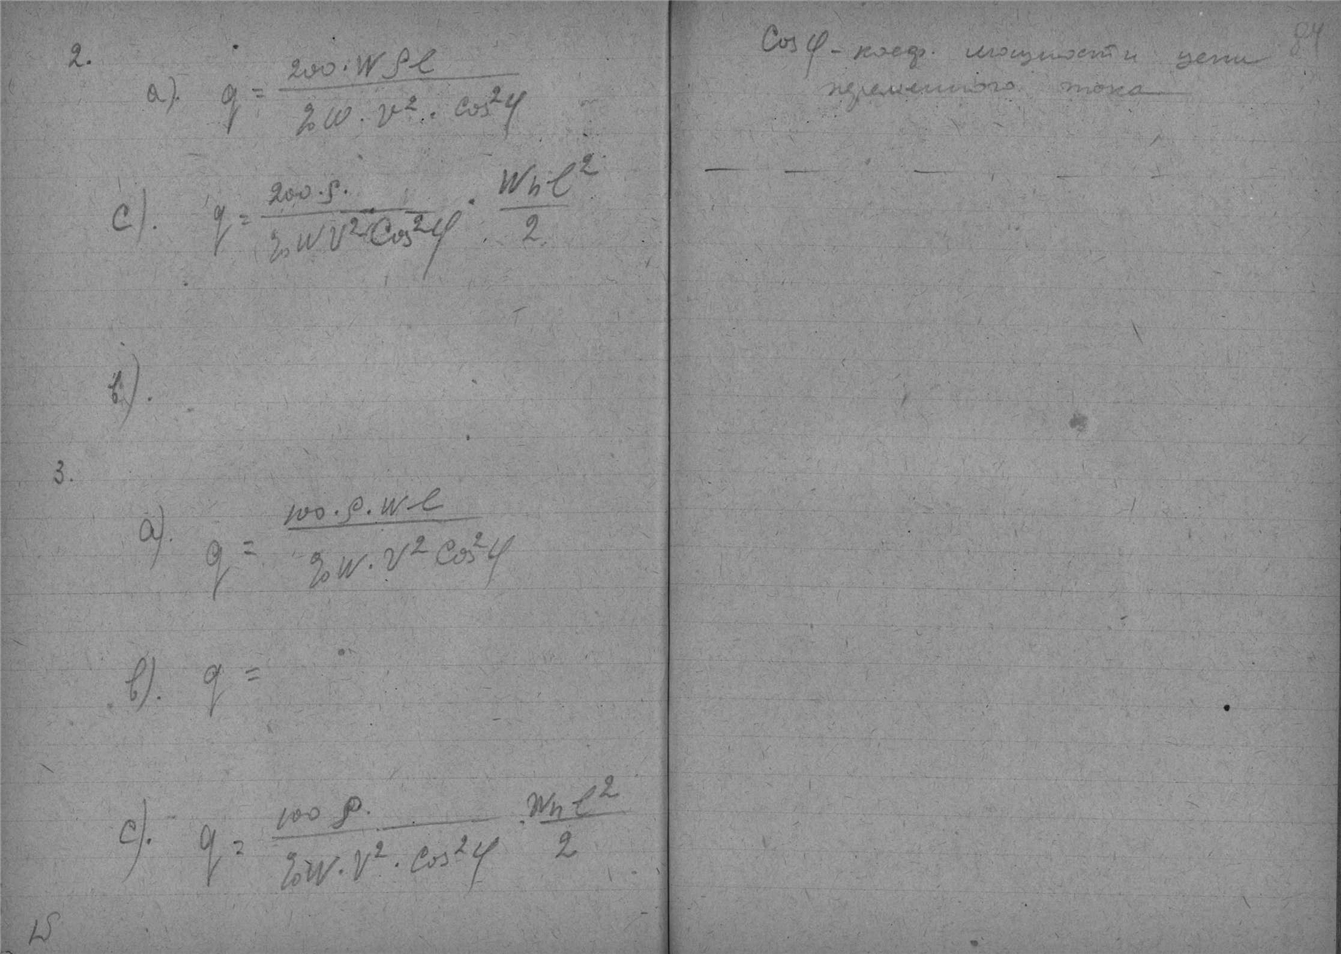 2.
a). q = 200·Wρl / %W·V²·Cos²φ
c). q = 200·ρ· / %WV²Cos²φ · Whl² / 2
b).
3.
a). q = 100·ρ·Wl / %W·V²Cos²φ
b). q =
c). q = 100ρ· / %W·V²·Cos²φ · Whl² / 2
84
Cosφ - коеф. мощности цепи
переменного тока